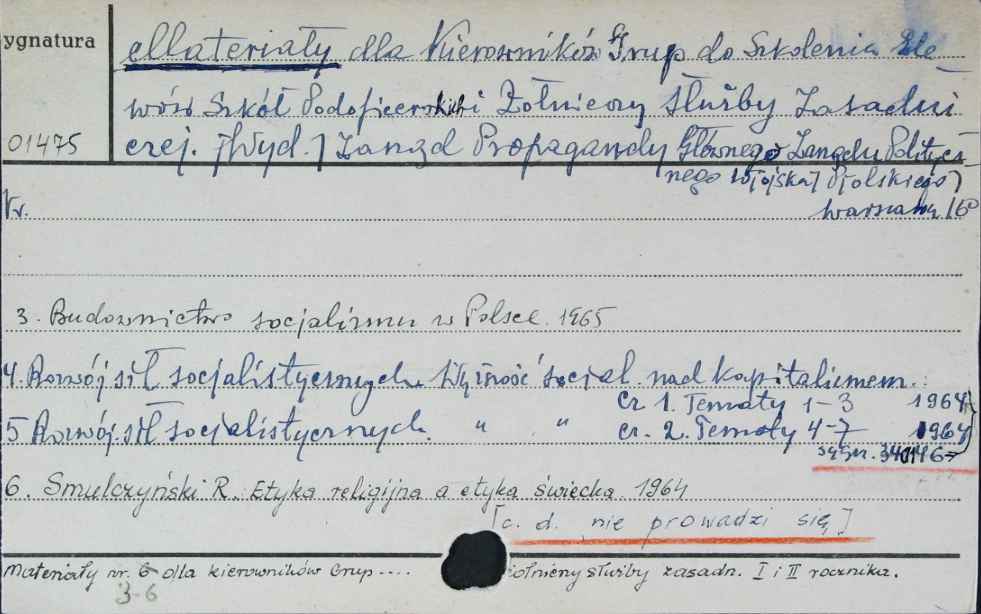 ygnatura
Materiały dla Kierowników Grup do Szkolenia Ele-
wów Szkół Podoficerskich i Żołnierzy Służby Zasadni
czej. [Wyd.] Zarząd Propagandy Głównego Zarządu Politycz-
01475
nego W[ojska] P[olskiego]
Warszawa
Nr.
3. Budownictwo socjalizmu w Polsce. 1965
4. Rozwój sił socjalistycznych. Wyższość socjal. nad kapitalizmem.
cz 1. Tematy 1-3 1964
5 Rozwój sił socjalistycznych. " " cz. 2. Tematy 4-7 1964
6. Smulczyński R. Etyka religijna a etyka świecka 1964
[c. d. nie prowadzi się]
Materiały nr. 6 dla kierowników Grup.... żołnierzy służby zasadn. I i II rocznika.
3-6